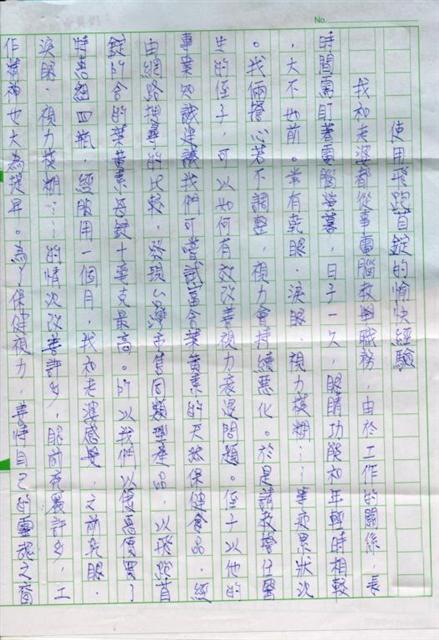 No.
使用飛蚊首錠的愉快經驗
我和老婆都從事電腦教學職務，由於工作的關係，長
時間盯著電腦螢幕，日子一久，眼睛功能和年輕時相較
，大不如前。常有乾眼、淚眼、視力模糊……等疲累狀況
。我倆擔心若不調整，視力會持續惡化。於是請教擔任醫
生的侄子，可以如何有效改善視力衰退問題。侄子以他的
專業知識建議我們可嘗試富含葉黃素的天然保健食品。經
由網路搜尋的比較，發現台灣市售同類型產品，以飛蚊首
錠所含的葉黃素
高。所以我們以優惠價買了
特惠組四瓶，經服用一個月，我和老婆感覺，之前乾眼、
淚眼、視力模糊……的情況改善許多，眼前夜晨許多，工
作精神也大為提昇。為了保健視力，善待自己的靈魂之窗